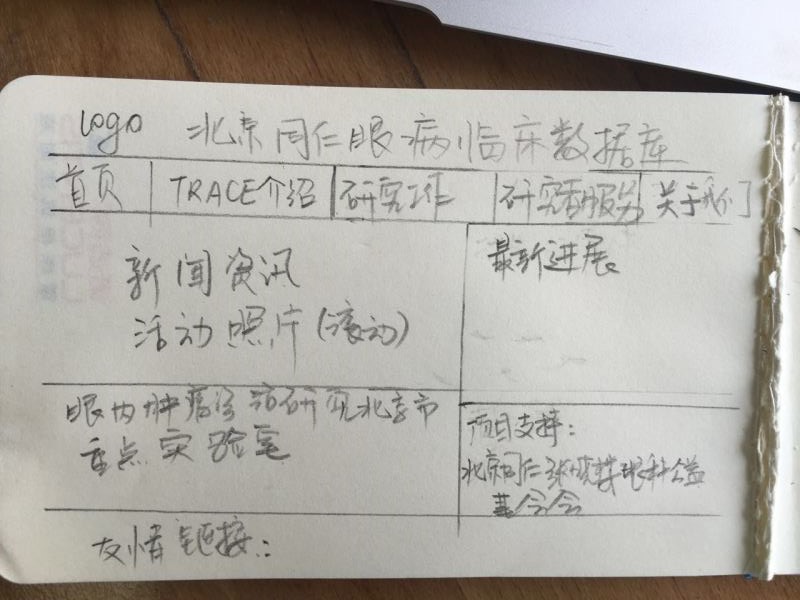 logo 北京同仁眼病临床数据库
首页 TRACE介绍 研究工作 研究者服务 关于我们
新闻资讯
活动照片(滚动)
最新进展
眼内肿瘤诊治研究北京市
重点实验室
项目支持:
北京同仁张晓楼眼科公益
基金会
友情链接: